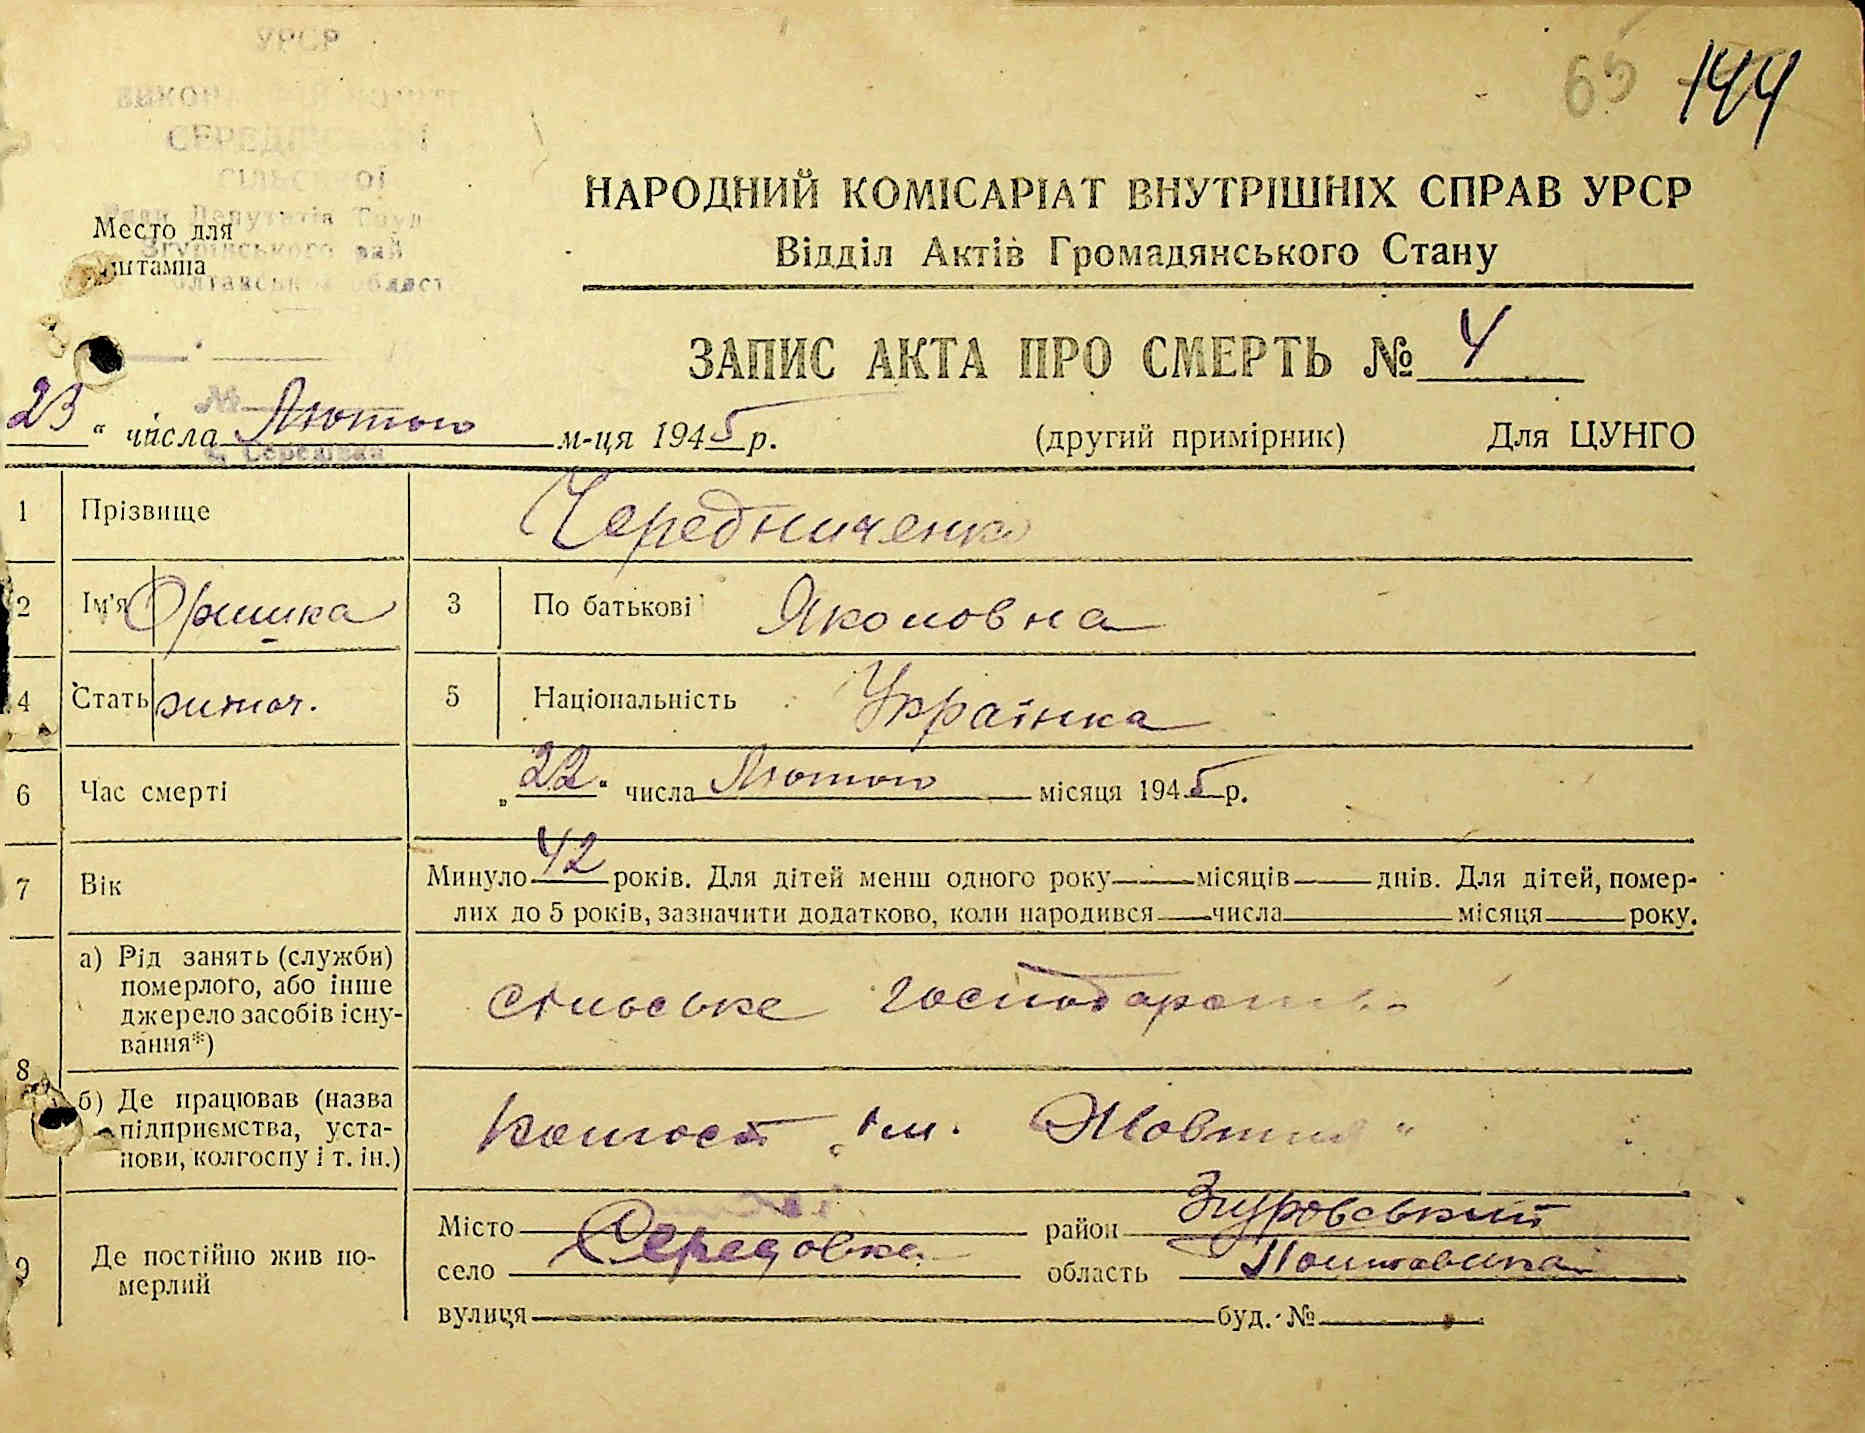 УРСР
СЕРЕДІВСЬКОЇ
СІЛЬСЬКОЇ
Ради Депутатів Труд
Место для
Згурівського рай
штампа
олтавської област
65 144
НАРОДНИЙ КОМІСАРІАТ ВНУТРІШНІХ СПРАВ УРСР
Відділ Актів Громадянського Стану
ЗАПИС АКТА ПРО СМЕРТЬ № 4
№
с. Середівка
23 " числа Лютого м-ця 1945 р. (другий примірник) Для ЦУНГО
1 Прізвище Чередниченко
2 Ім'я Оришка 3 По батькові Якововна
4 Стать жиноч. 5 Національність Українка
6 Час смерті „ 22 " числа Лютого місяця 1945 р.
7 Вік Минуло 42 років. Для дітей менш одного року місяців днів. Для дітей, помер-
лих до 5 років, зазначити додатково, коли народився числа місяця року.
8 а) Рід занять (служби)
померлого, або інше
джерело засобів існу-
вання*)
сільське господарство
б) Де працював (назва
підприємства, уста-
нови, колгоспу і т. ін.)
Колгосп „ім. Жовтня"
9 Де постійно жив по-
мерлий
Місто район Згуровський
село Середовка область Полтавська
вулиця буд. №